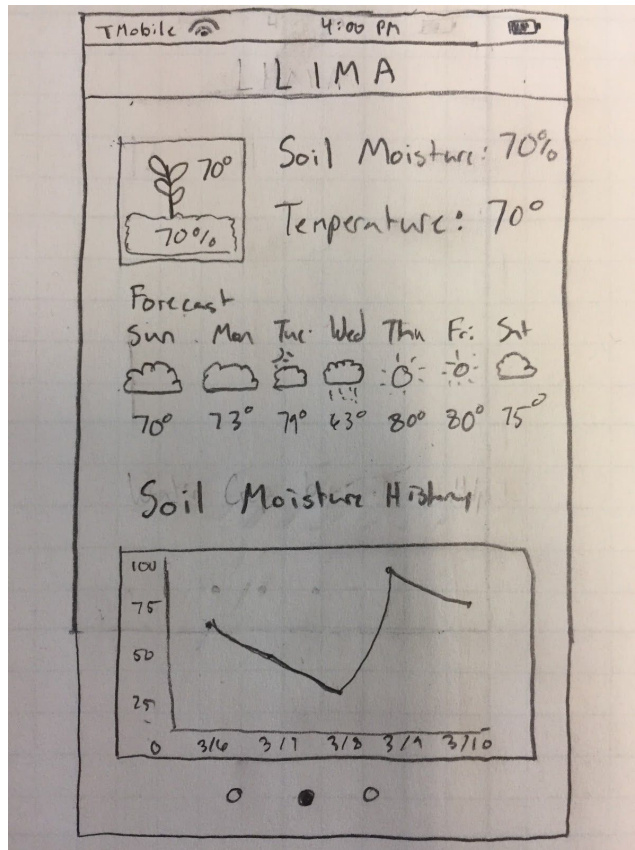 TMobile 4:00 PM
LIMA
70°
70%
Soil Moisture: 70%
Temperature: 70°
Forecast
Sun Mon Tue. Wed Thu Fri Sat
70° 73° 79° 63° 80° 80° 75°
Soil Moisture History
100
75
50
25
0 3/6 3/7 3/8 3/9 3/10